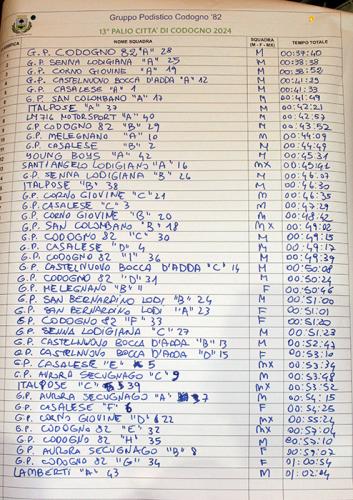 Gruppo Podistico Codogno '82
13° PALIO CITTA' DI CODOGNO 2024
CLASSIFICA NOME SQUADRA SQUADRA (M - F - MX) TEMPO TOTALE
G.P. CODOGNO 82 "A" 28 M 00:37:40
G.P. SENNA LODIGIANA "A" 25 M 00:38:38
G.P. CORNO GIOVINE "A" 19 M 00:38:52
G.P. CASTELNUOVO BOCCA D'ADDA "A" 12 M 00:41:25
G.P. CASALESE "A" 1 M 00:41:33
G.P. SAN COLOMBANO "A" 17 M 00:41:49
ITALPOSE "A" 37 M 00:42:21
LM716 MOTORSPORT "A" 40 M 00:42:57
G.P. CODOGNO 82 "B" 29 M 00:43:52
G.P. MELEGNANO "A" 10 M 00:44:09
G.P. CASALESE "B" 2 M 00:44:49
YOUNG BOYS "A" 42 M 00:45:31
SANTANGELO LODIGIANO "A" 16 MX 00:45:44
G.P. SENNA LODIGIANA "B" 26 M 00:46:07
ITALPOSE "B" 38 M 00:46:30
G.P. CORNO GIOVINE "C" 21 M 00:46:35
G.P. CASALESE "C" 3 M 00:47:29
G.P. CORNO GIOVINE "B" 20 M 00:48:42
G.P. SAN COLOMBANO "B" 18 MX 00:49:02
G.P. CODOGNO 82 "C" 30 M 00:49:15
G.P. CASALESE "D" 4 M 00:49:17
G.P. CODOGNO 82 "I" 36 M 00:49:39
G.P. CASTELNUOVO BOCCA D'ADDA "C" 14 M 00:50:08
G.P. CODOGNO 82 "D" 31 M 00:50:24
G.P. MELEGNANO "B" 11 F 00:50:46
G.P. SAN BERNARDINO LODI "B" 24 M 00:51:00
G.P. SAN BERNARDINO LODI "A" 23 F 00:51:01
G.P. CODOGNO 82 "F" 33 F 00:51:20
G.P. SENNA LODIGIANA "C" 27 M 00:51:23
G.P. CASTELNUOVO BOCCA D'ADDA "B" 13 M 00:52:43
G.P. CASTELNUOVO BOCCA D'ADDA "D" 15 F 00:53:10
G.P. CASALESE "E" 5 MX 00:53:34
G.P. AURORA SECUGNAGO "C" 9 M 00:53:48
ITALPOSE "C" 39 MX 00:53:52
G.P. AURORA SECUGNAGO "A" 7 M 00:54:15
G.P. CASALESE "F" 6 F 00:54:25
G.P. CORNO GIOVINE "D" 22 MX 00:55:24
G.P. CODOGNO 82 "E" 32 MX 00:57:04
G.P. CODOGNO 82 "H" 35 M 00:57:10
G.P. AURORA SECUGNAGO "B" 8 F 00:59:07
G.P. CODOGNO 82 "G" 34 F 01:00:54
LAMBERTI "A" 43 M 01:02:04